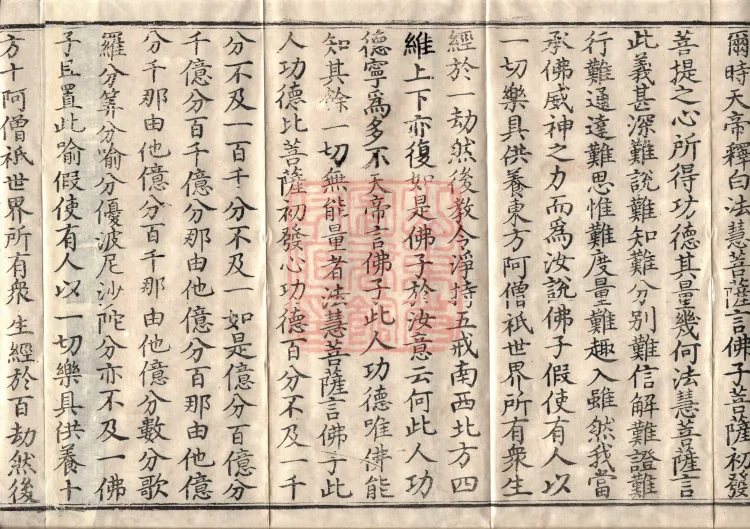 爾時天帝釋白法慧菩薩言佛子菩薩初發
菩提之心所得功德其量幾何法慧菩薩言
此義甚深難說難知難分別難信解難證難
行難通達難思惟難度量難趣入雖然我當
承佛威神之力而為汝說佛子假使有人以
一切樂具供養東方阿僧祇世界所有衆生
經於一劫然後教令淨持五戒南西北方四
維上下亦復如是佛子於汝意云何此人功
德寧為多不天帝言佛子此人功德唯佛能
知其餘一切無能量者法慧菩薩言佛子此
人功德比菩薩初發心功德百分不及一千
分不及一百千分不及一如是億分百億分
千億分百千億分那由他億分百那由他億
分千那由他億分百千那由他億分數分歌
羅分筭分喻分優波尼沙陀分亦不及一佛
子且置此喻假使有人以一切樂具供養十
方十阿僧祇世界所有衆生經於百劫然後